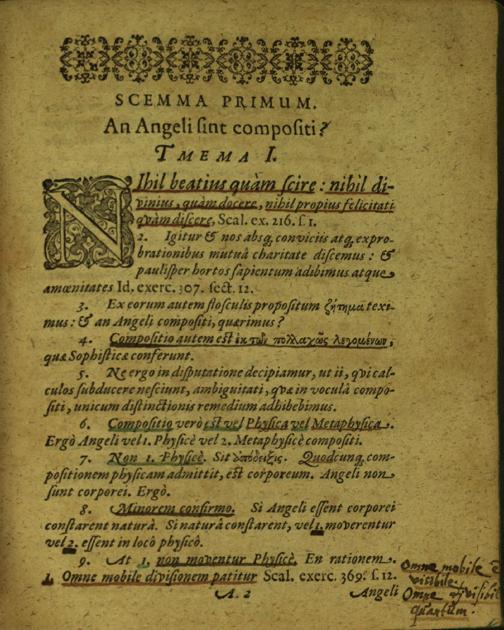 SCEMMA PRIMUM.
An Angeli sint compositi?
TMEMA I.
NIhil beatius quàm scire: nihil di-
vinius, quàm docere, nihil propius felicitati
quàm discere, Scal. ex. 216. s. 1.
2. Igitur & nos absq; conviciis atq; expro-
brationibus mutuâ charitate discemus: &
paulisper hortos sapientum adibimus atque
amœnitates Id. exerc. 307. sect. 12.
3. Ex eorum autem flosculis propositum ζήτημα texi-
mus: & an Angeli compositi, quærimus?
4. Compositio autem est ἐκ τῶν πολλαχῶς λεγομένων,
quæ Sophisticæ conferunt.
5. Ne ergo in disputatione decipiamur, ut ii, qui cal-
culos subducere nesciunt, ambiguitati, quæ in voculâ compo-
siti, unicum distinctionis remedium adhibebimus.
6. Compositio verò est vel Physica vel Metaphysica.
Ergò Angeli vel 1. Physicè vel 2. Metaphysicè compositi.
7. Non 1. Physicè. Sit ὑπόδειξις. Quodcunq; com-
positionem physicam admittit, est corporeum. Angeli non
sunt corporei. Ergò.
8. Minorem confirmo. Si Angeli essent corporei
constarent naturâ. Si naturâ constarent, vel 1. moverentur
vel 2. essent in locô physicô.
9. At 1. non moventur Physicè. En rationem.
1. Omne mobile divisionem patitur Scal. exerc. 369. s. 12.
A. 2 Angeli
Omne mobile ē
visibile.
Omne
quantum.